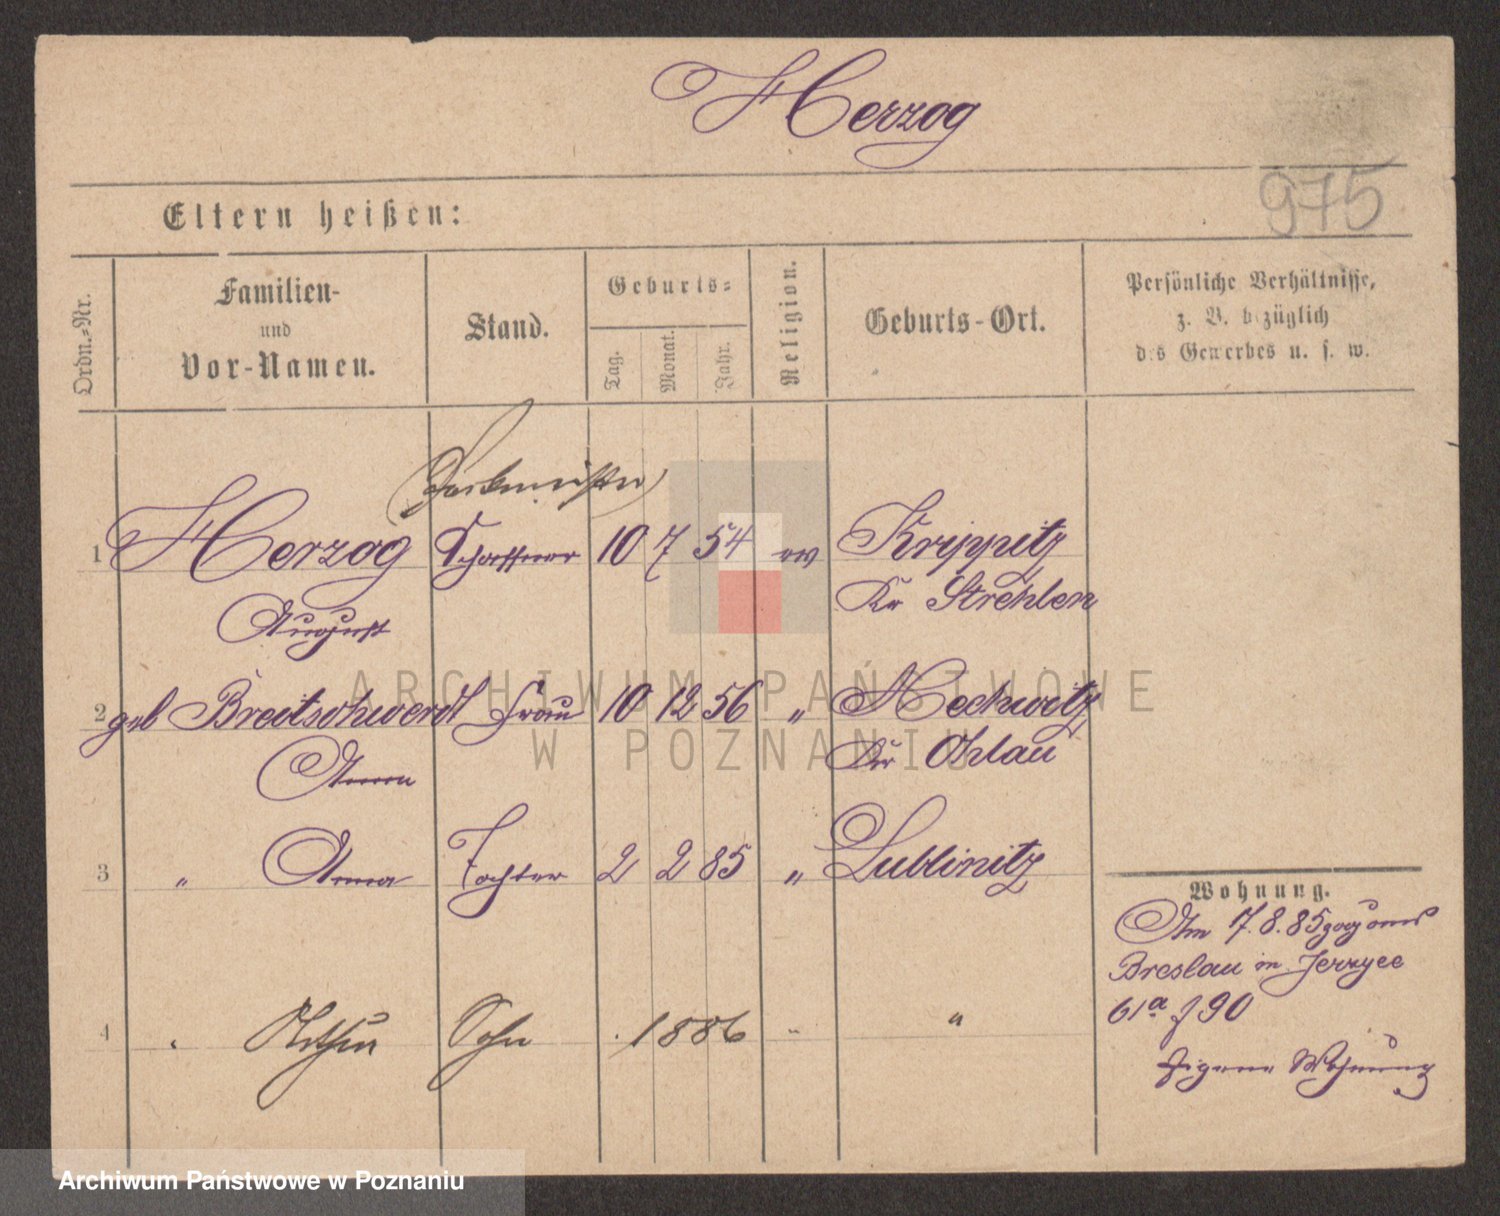 Herzog
975
Eltern heißen:
Ordn.-Nr.
Familien-
und
Vor-Namen.
Stand.
Geburts-
Tag.
Monat.
Jahr.
Religion.
Geburts-Ort.
Persönliche Verhältnisse,
z. B. bezüglich
des Gewerbes u. s. w.
(Packmeister)
1 Herzog Schaffner 10 7 54 ev Krippitz
August Kr Strehlen
2 geb Breitschwerdt Frau 10 12 56 " Mechwitz
Anna Kr Ohlau
3 " Anna Tochter 2 2 85 " Lublinitz
4 " Arthur Sohn . 1886 " "
Wohnung.
Am 7.8.85 zog aus
Breslau in Jerzyce
61a J 90
Eigene Wohnung
ARCHIWUM PAŃSTWOWE
W POZNANIU
Archiwum Państwowe w Poznaniu